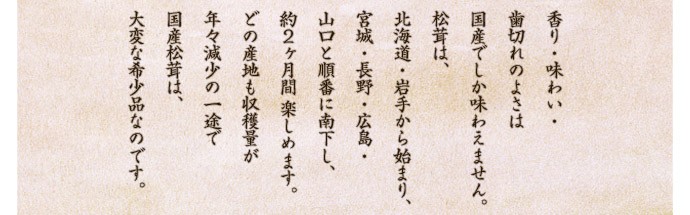 香り・味わい・
歯切れのよさは
国産でしか味わえません。
松茸は、
北海道・岩手から始まり、
宮城・長野・広島・
山口と順番に南下し、
約２ヶ月間楽しめます。
どの産地も収穫量が
年々減少の一途で
国産松茸は、
大変な希少品なのです。